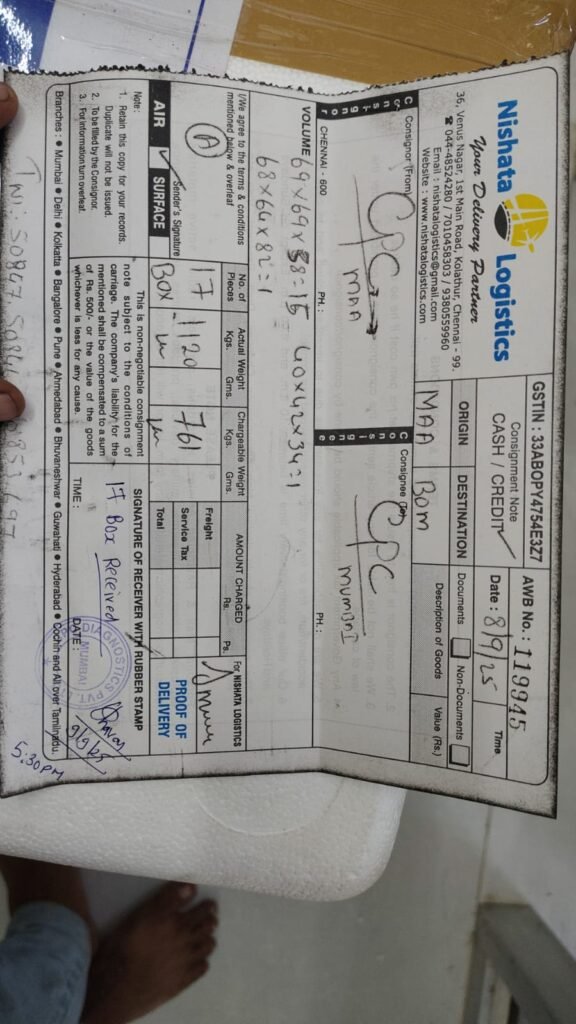 Nishata Logistics
Your Delivery Partner
36, Venus Nagar, 1st Main Road, Kolathur, Chennai - 99.
☎ 044-48524280 / 7010458303 - 9380559960
Email : nishatalogistics@gmail.com
Website : www.nishatalogistics.com
GSTIN : 33ABOPY4754E3Z7
Consignment Note
CASH / CREDIT
AWB No. : 119945
Date : 8/9/25
Time
ORIGIN
DESTINATION
MAA
BOM
Documents
Non-Documents
Description of Goods
Value (Rs.)
Consignor
Consignor (From)
CPC
MAA
CHENNAI - 600
PH. :
Consignee
Consignee (To)
CPC
MUMBAI
PH. :
VOLUME 69x69x58=15 40x42x34=1
68x64x82=1
I/We agree to the terms & conditions
mentioned below & overleaf
A
Sender's Signature
AIR
SURFACE
No. of Pieces
Actual Weight
Kgs. Gms.
Chargeable Weight
Kgs. Gms.
AMOUNT CHARGED
Rs. Ps.
17
BOX
1120
761
Freight
Service Tax
Total
For NISHATA LOGISTICS
PROOF OF
DELIVERY
Note :
1. Retain this copy for your records.
Duplicate will not be issued.
2. To be filled by the Consignor.
3. For information turn overleaf.
This is non-negotiable consignment
note subject to the conditions of
carriage. The company's liability for the
mentioned shall be compensated to a sum
of Rs. 500/- or the value of the goods
whichever is less for any cause.
SIGNATURE OF RECEIVER WITH RUBBER STAMP
17 Box Received
TIME :
DATE :
DIAGNOSTICS PVT.
MUMBAI
9/9/25
5:30PM
Branches : ● Mumbai ● Delhi ● Kolkatta ● Bangalore ● Pune ● Ahmedabad ● Bhuvaneshwar ● Guwahati ● Hyderabad ● Cochin and All over Tamilnadu.